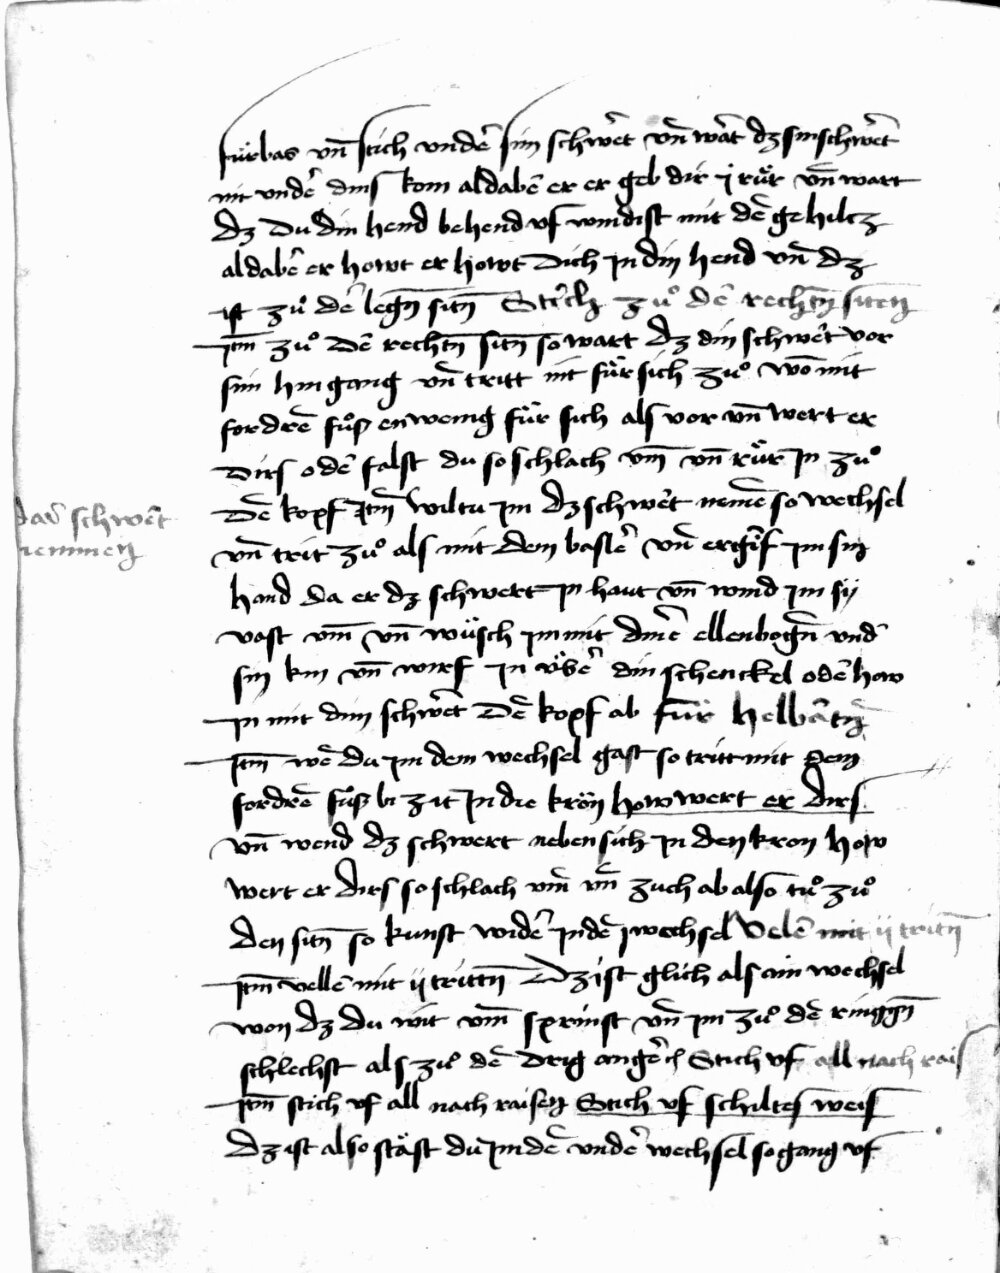 fürbas vn̄ stich vnder̄ sim schwer̄t vn̄ wart̄ dz sin schwer̄t
nit vnder̄ dins kom aldabē er er geb dir j rür vn̄ wart
dz du din hend behend vf windist mit dē gehiltz
aldabē er howt er howt dich jn din hend vn̄ dz
ist zuͦ dē legn̄ sitn̄ Strich zuͦ dē rechtn̄ siten
Itm̄ zuͦ dē rechtn̄ sitn̄ so wart dz din schwer̄t vor
sim hin gang vn̄ tritt nit für sich zuͦ wō mit
fordrē fuͦß en wenig für sich als vor vn̄ wert er
dirs oder̄ falst du so schlach vm̄ vn̄ rür jn zuͦ
dē kopf Itm̄ wiltu jm dz schwer̄t nemē so wechsel
das̄ schwer̄t
nemmen
vn̄ trit zuͦ als mit dem basler̄ vn̄ ergrif jm sin
hand da er dz schwert jn haut vn̄ wind jm sy
vast vm̄ vn̄ wüsch jm mit dinē ellenbogn̄ vnd̄
sin kin vn̄ wirf jn v̈ber̄ din schenckel oder̄ how
jn mit dim schwer̄t dē kopf ab für helbar̄tn̄
Itm̄ wē du jm dem wechsel gast so tritt mit dem
fordrē fuͦß bi zit jn die krön how wert er dirs
vn̄ wend dz schwert neben sich jn den kron how
wert er dirs so schlach vm̄ vn̄ zuch ab also tuͦ zuͦ
den sitn̄ so kunst wider̄ jn dē wechsel Velē mit ij tritn̄
Itm̄ vellē mit ij trittn̄ Dz ist glich als ain wechsel
won dz du wit vm̄ sprinst vn̄ jn zuͦ dē ringgn̄
schlechst als zuͦ dē drig Stich vf all nach rais
Itm̄ stich vf all nach raisen Stich vf schiltes weis
Dz ist also stäst du jn dē vnder̄ wechsel so gang vf